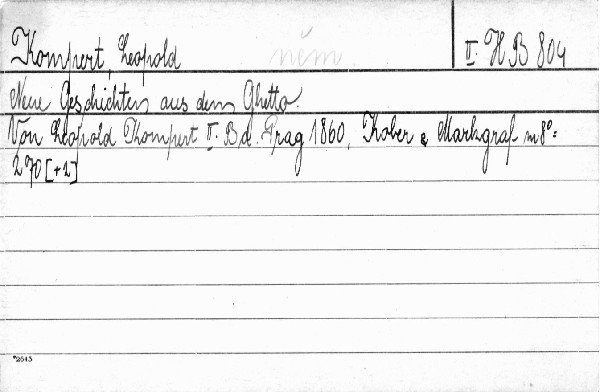 Kompert, Leopold něm II. H B 804
Neue Geschichten aus dem Ghetto.
Von Leopold Kompert II. Bd. Prag 1860, Kober & Markgraf m8°:
270 [+2]
*2643